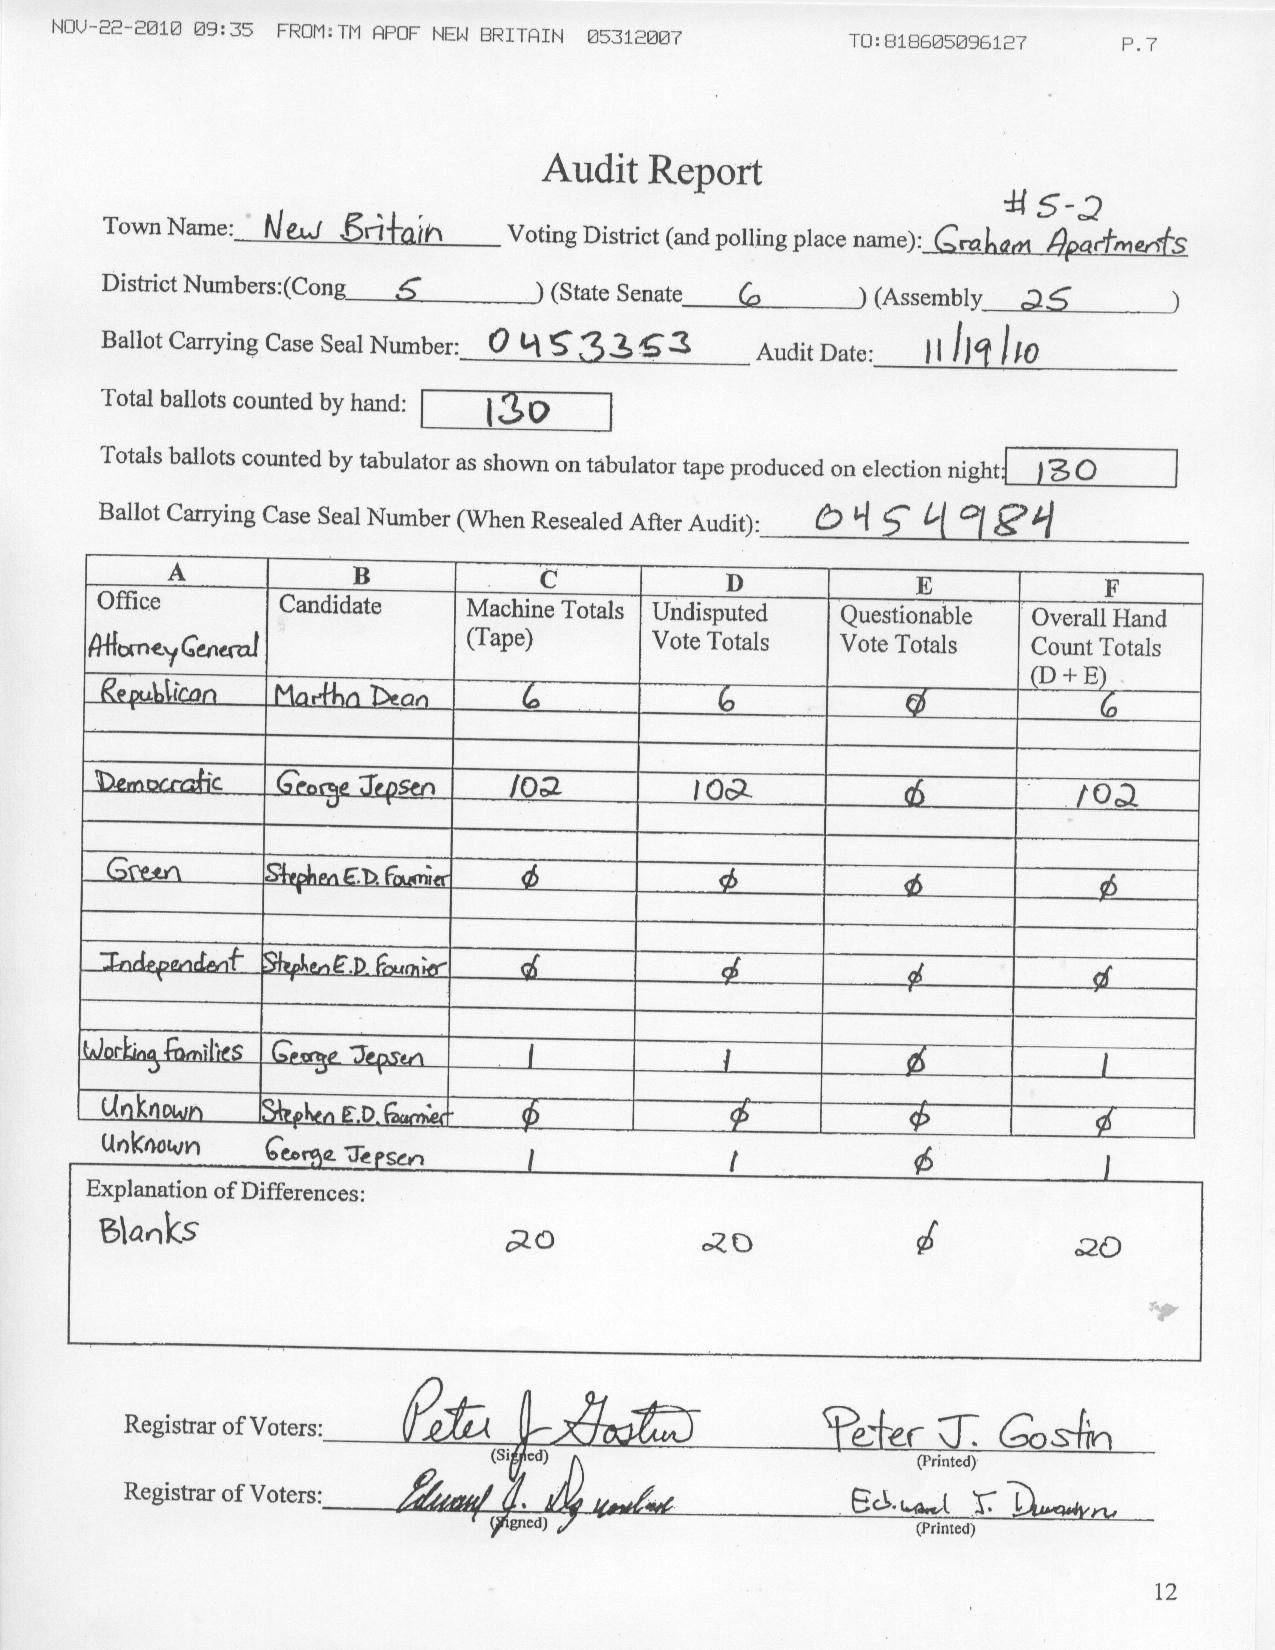 NOV-22-2010 09:35 FROM:TM APOF NEW BRITAIN 05312007 TO:818605096127 P.7
Audit Report
#5-2
Town Name: New Britain Voting District (and polling place name): Graham Apartments
District Numbers:(Cong 5 ) (State Senate 6 ) (Assembly 25 )
Ballot Carrying Case Seal Number: 0453353 Audit Date: 11/19/10
Total ballots counted by hand: 130
Totals ballots counted by tabulator as shown on tabulator tape produced on election night: 130
Ballot Carrying Case Seal Number (When Resealed After Audit): 0454984
A B C D E F
Office Candidate Machine Totals Undisputed Questionable Overall Hand
Attorney General (Tape) Vote Totals Vote Totals Count Totals
(D + E)
Republican Martha Dean 6 6 Ø 6
Democratic George Jepsen 102 102 Ø 102
Green Stephen E.D. Fournier Ø Ø Ø Ø
Independent Stephen E.D. Fournier Ø Ø Ø Ø
Working Families George Jepsen 1 1 Ø 1
Unknown Stephen E.D. Fournier Ø Ø Ø Ø
Unknown George Jepsen 1 1 Ø 1
Explanation of Differences:
Blanks 20 20 Ø 20
Registrar of Voters: Peter J Gostin Peter J. Gostin
(Signed) (Printed)
Registrar of Voters: Edward J. Edward J.
(Signed) (Printed)
12